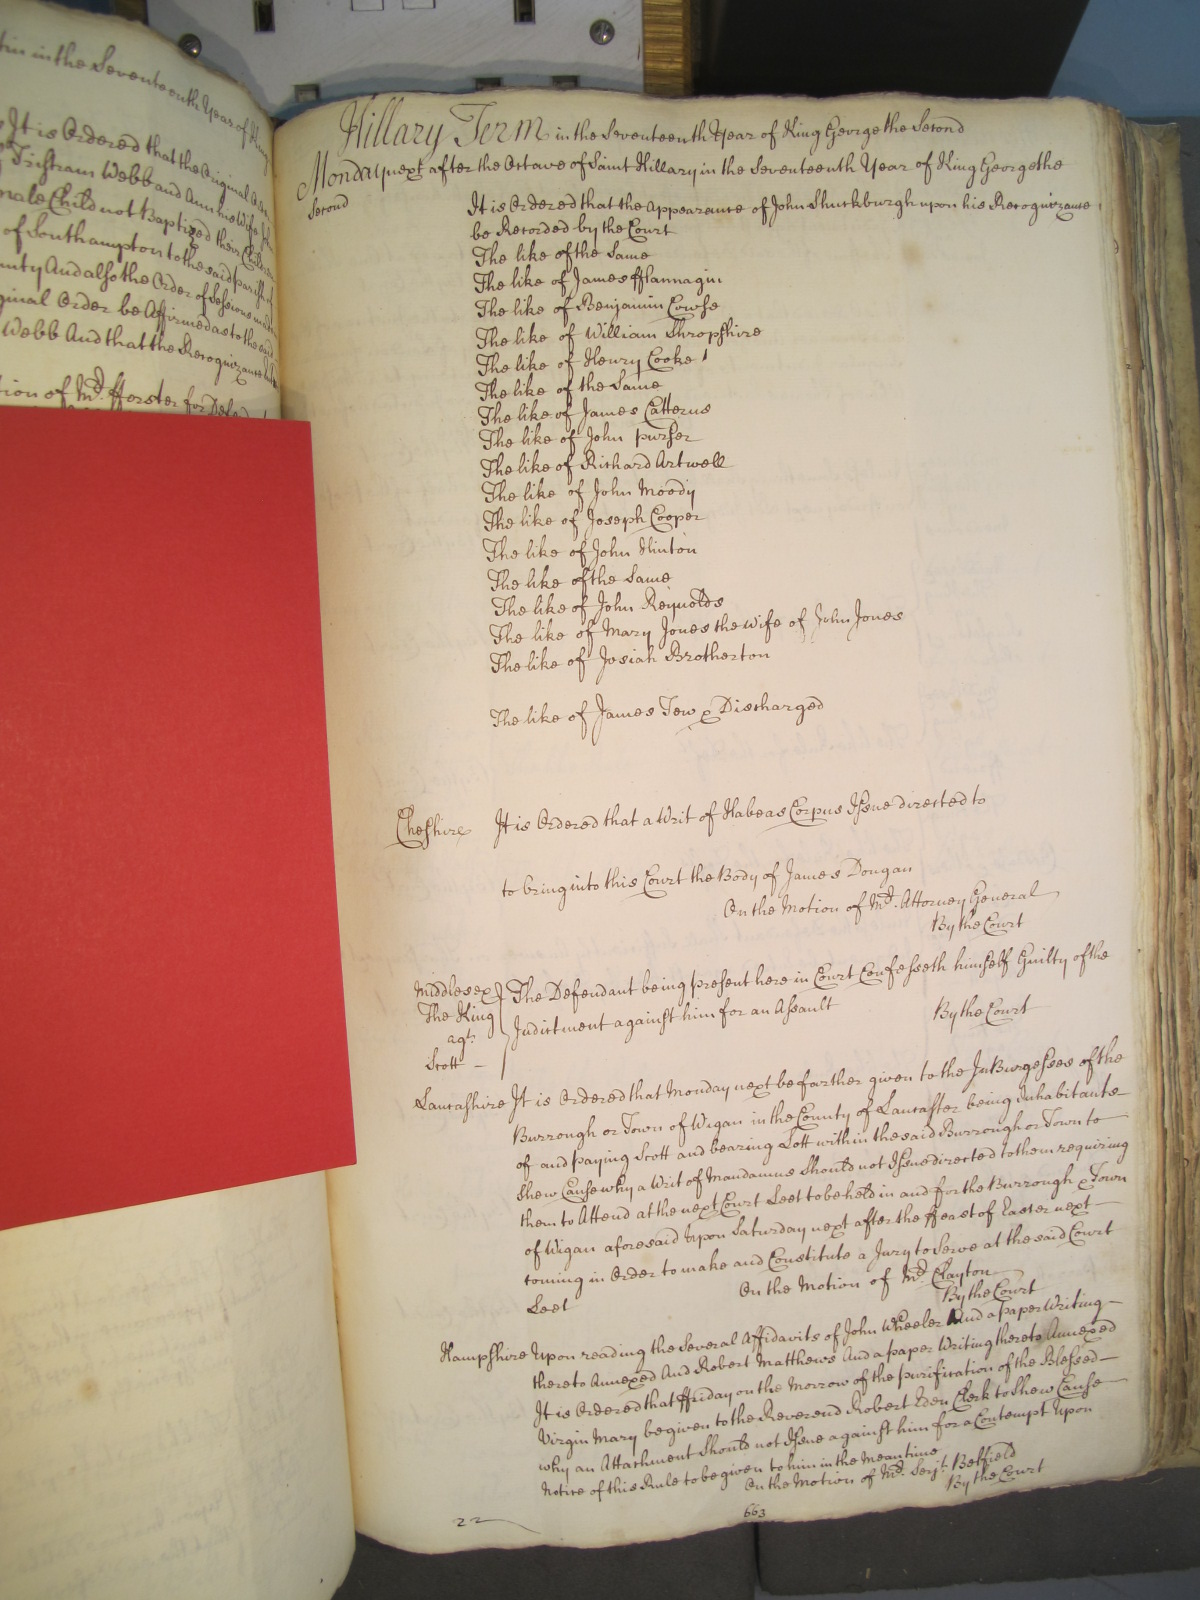 tin in the Seventeenth Year of King
It is Ordered that the Original Order
Tristram Webb and Ann his Wife John
male Child not Baptized their Children
of Southampton to the said parish of
unty And also the Order of Sessions made
ginal Order be Affirmed as to the said
Webb And that the Recognizance
tion of Mr. fforster for Defendt
Hillary Term in the Seventeenth Year of King George the Second
Monday next after the Octave of Saint Hillary in the Seventeenth Year of King George the
Second
It is Ordered that the Appearance of John Shuckburgh upon his Recognizance
be Recorded by the Court
The like of the Same
The like of James fflannagin
The like of Benjamin Cowse
The like of William Shropshire
The like of Henry Cooke
The like of the Same
The like of James Catterns
The like of John purser
The like of Richard Artwell
The like of John Moody
The like of Joseph Cooper
The like of John Hinton
The like of the Same
The like of John Reynolds
The like of Mary Jones the Wife of John Jones
The like of Josiah Brotherton
The like of James Tew & Discharged
Cheshire It is Ordered that a Writ of Habeas Corpus Issue directed to
to bring into this Court the Body of James Dongan
On the Motion of Mr. Attorney General
By the Court
Middlesex The Defendant being present here in Court Confesseth himself Guilty of the
The King
Indictment against him for an Assault By the Court
agt.
Scott
Lancashire It is Ordered that Monday next be farther given to the InBurgesses of the
Burrough or Town of Wigan in the County of Lancaster being Inhabitants
of and paying Scott and bearing Lott within the said Burrough or Town to
shew Cause why a Writ of Mandamus should not Issue directed to them requiring
them to Attend at the next Court Leet to be held in and for the Burrough & Town
of Wigan aforesaid Upon Saturday next after the ffeast of Easter next
coming in Order to make and Constitute a Jury to Serve at the said Court
Leet On the Motion of Mr. Clayton
By the Court
Hampshire Upon reading the Several Affidavits of John Wheeler And a paper Writing
thereto Annexed And Robert Matthews And a paper Writing thereto Annexed
It is Ordered that ffriday on the Morrow of the purification of the Blessed
Virgin Mary be given to the Reverend Robert Eden Clerk to shew Cause
why an Attachment should not Issue against him for a Contempt Upon
Notice of this Rule to be given to him in the meantime
On the Motion of Mr. Serjt. Belfield
By the Court
22
663